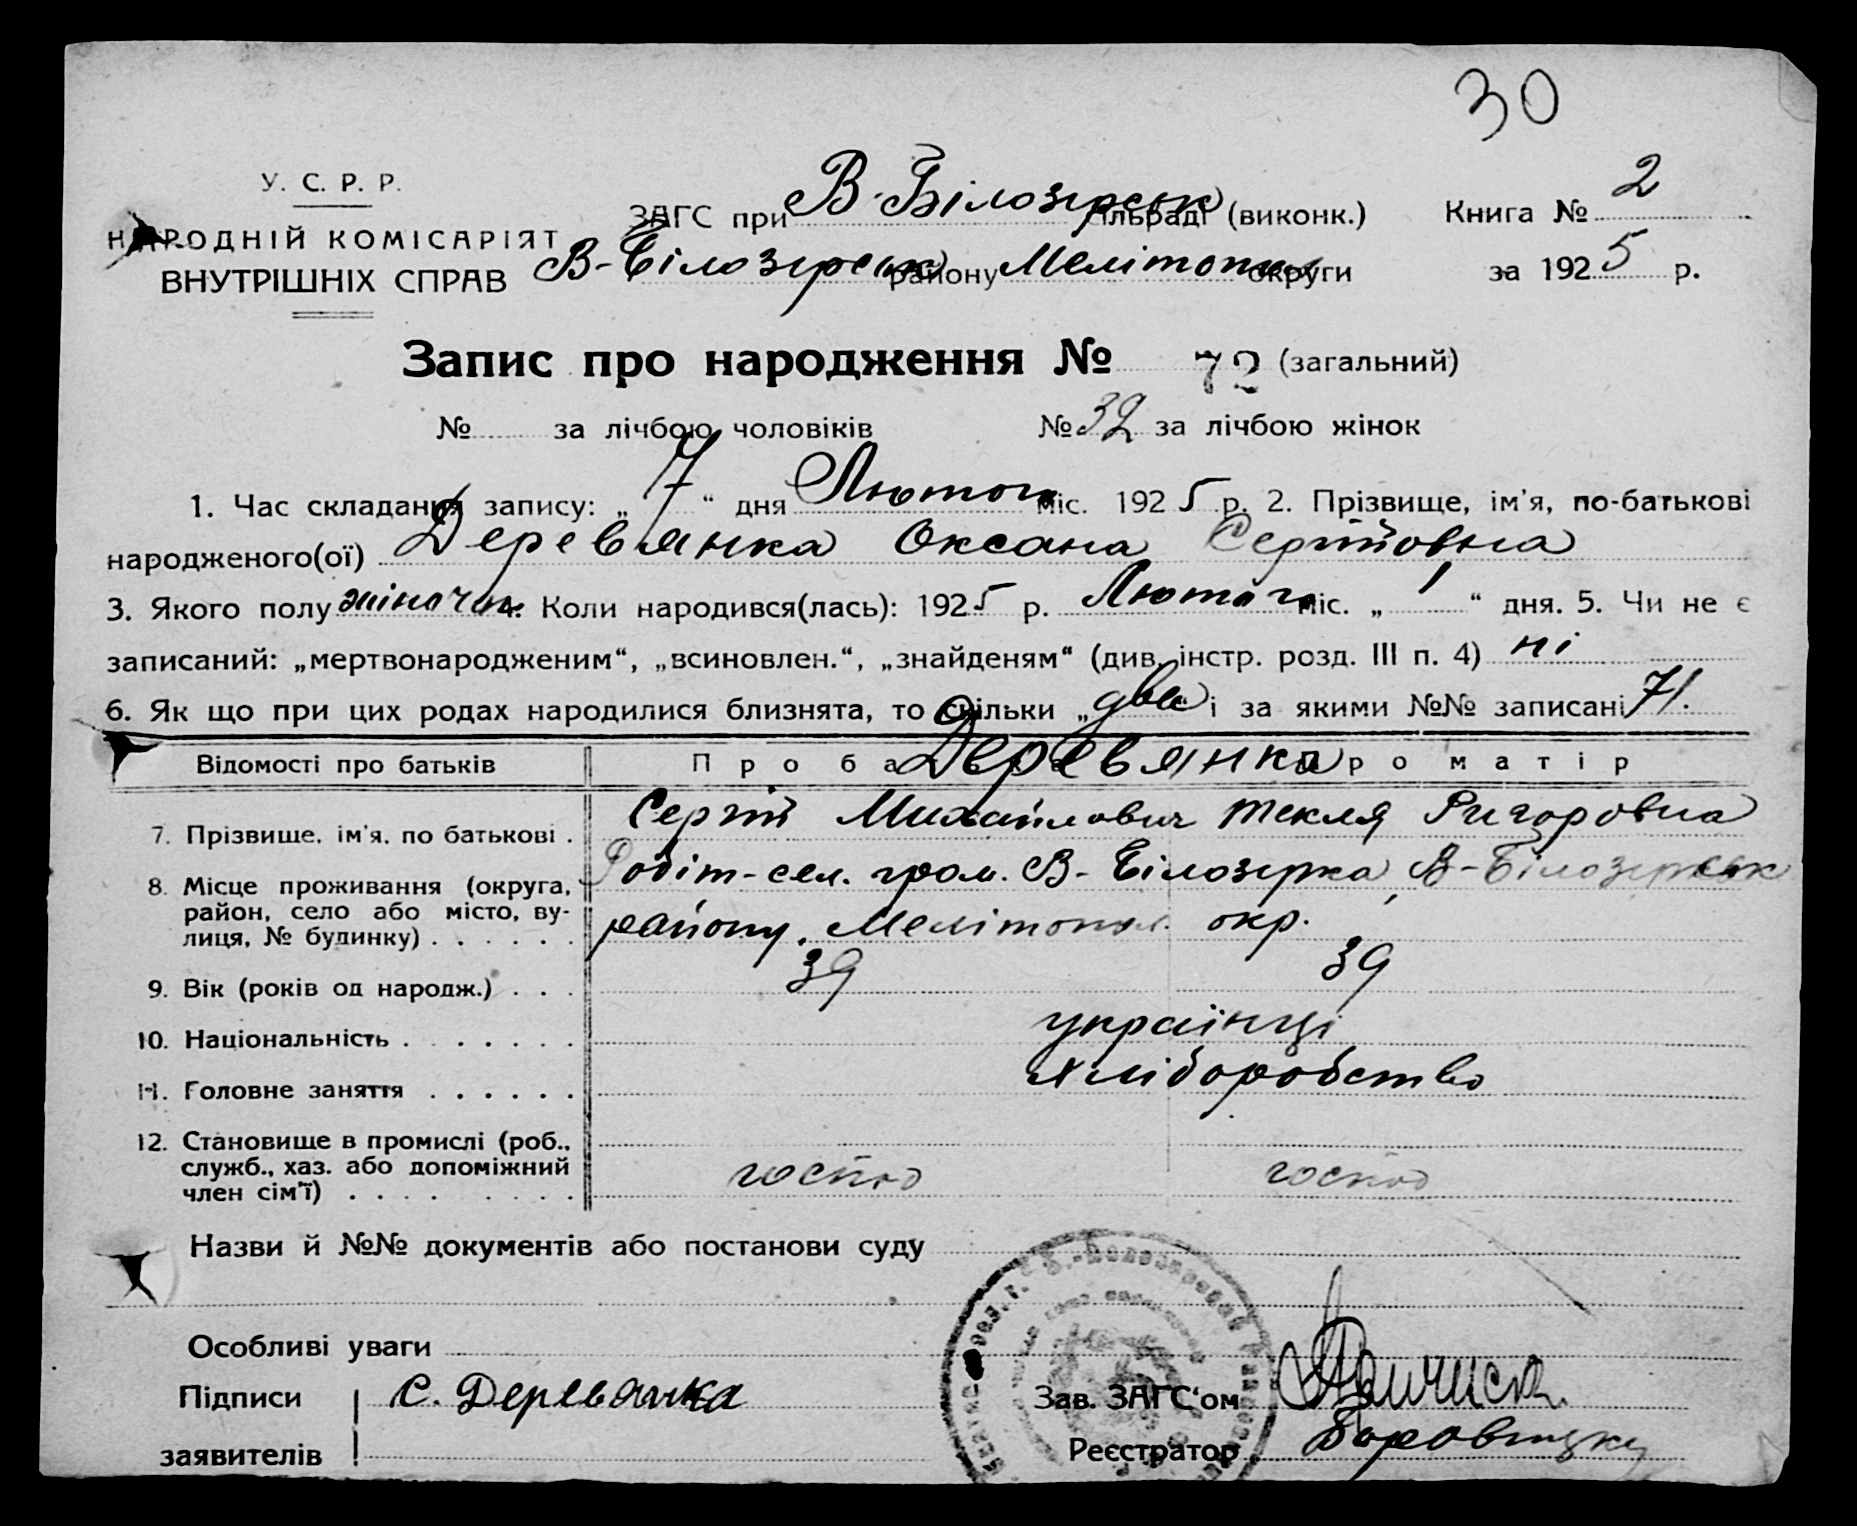 30
У. С. Р. Р.
НАРОДНІЙ КОМІСАРІЯТ
ВНУТРІШНІХ СПРАВ
ЗАГС при В-Білозірськ сільраді (виконк.) Книга № 2
В-Білозірськ району Мелітопол округи за 1925 р.
Запис про народження № 72 (загальний)
№ за лічбою чоловіків № 32 за лічбою жінок
1. Час складання запису: „7“ дня Лютого міс. 1925 р. 2. Прізвище, ім'я, по-батькові
народженого(ої) Деревянка Оксана Сергіївна
3. Якого полу жіночого 4. Коли народився(лась): 1925 р. Лютого міс. „1“ дня. 5. Чи не є
записаний: „мертвонародженим“, „всиновлен.“, „знайденям“ (див. інстр. розд. III п. 4) ні
6. Як що при цих родах народилися близнята, то скільки „два“ і за якими №№ записані 71.
Відомості про батьків Про батька Про матір
Деревянка
7. Прізвище, ім'я, по батькові . Сергій Михайлович Текля Ригоровна
8. Місце проживання (округа, район, село або місто, вулиця, № будинку) . . . . . . Робіт-сел. гром. В-Білозірка, В-Білозірськ
району, Мелітопол. окр.
9. Вік (років од народж.) . . . 39 39
10. Національність . . . . . . . українці
11. Головне заняття . . . . . . хліборобство
12. Становище в промислі (роб., служб., хаз. або допоміжний член сім'ї) . . . . . . . . . господ господ
Назви й №№ документів або постанови суду
Особливі уваги
Підписи С. Деревянка Зав. ЗАГС'ом
заявителів Реєстратор